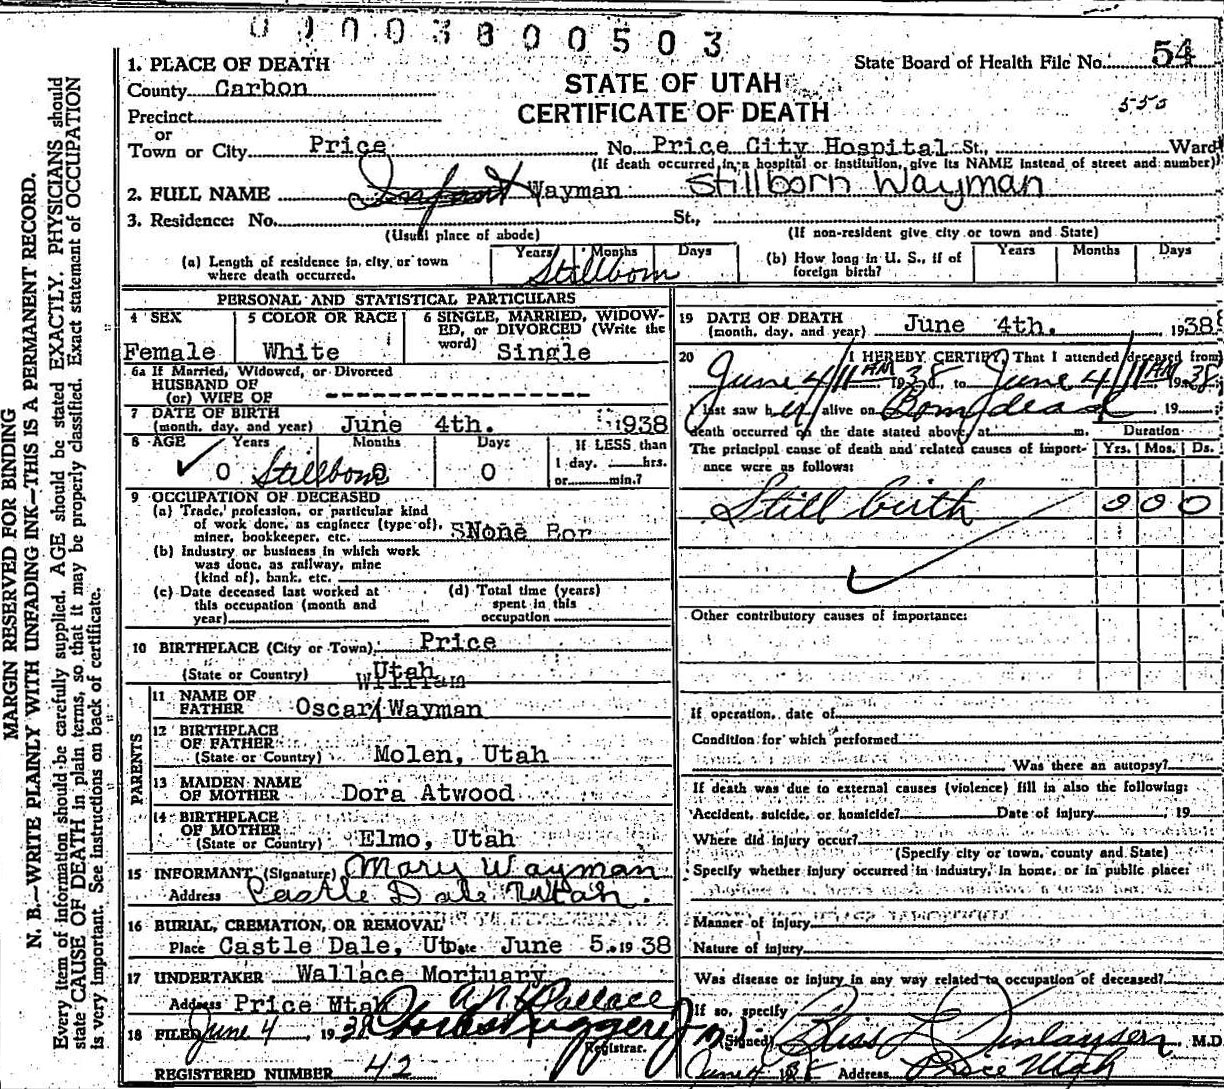 0100380 0503
State Board of Health File No. 54
555
1. PLACE OF DEATH
STATE OF UTAH
County Carbon
CERTIFICATE OF DEATH
Precinct
or
Town or City Price No. Price City Hospital St., Ward
(If death occurred in a hospital or institution, give its NAME instead of street and number)
2. FULL NAME Infant Wayman Stillborn Wayman
3. Residence: No. St.,
(Usual place of abode) (If non-resident give city or town and State)
(a) Length of residence in city or town where death occurred. Years Months Days Stillborn
(b) How long in U. S., if of foreign birth? Years Months Days
PERSONAL AND STATISTICAL PARTICULARS
4 SEX Female
5 COLOR OR RACE White
6 SINGLE, MARRIED, WIDOWED, or DIVORCED (Write the word) Single
6a If Married, Widowed, or Divorced
HUSBAND OF
(or) WIFE OF
7 DATE OF BIRTH
(month, day, and year) June 4th. 1938
8 AGE Years Months Days If LESS than
0 Stillborn 0 0 1 day, hrs.
or min.?
9 OCCUPATION OF DECEASED
(a) Trade, profession, or particular kind
of work done, as engineer (type of),
miner, bookkeeper, etc. SNone Bor
(b) Industry or business in which work
was done, as railway, mine
(kind of), bank, etc.
(c) Date deceased last worked at
this occupation (month and
year)
(d) Total time (years)
spent in this
occupation
10 BIRTHPLACE (City or Town) Price
(State or Country) Utah
William
11 NAME OF
FATHER Oscar Wayman
PARENTS
12 BIRTHPLACE
OF FATHER
(State or Country) Molen, Utah
13 MAIDEN NAME
OF MOTHER Dora Atwood
14 BIRTHPLACE
OF MOTHER
(State or Country) Elmo, Utah
15 INFORMANT (Signature) Mary Wayman
Address Castle Dale Utah.
16 BURIAL, CREMATION, OR REMOVAL
Place Castle Dale, Ut Date June 5. 1938
17 UNDERTAKER Wallace Mortuary
Address Price Mtah Wallace
18 FILED June 4 1938
Registrar.
REGISTERED NUMBER 42
19 DATE OF DEATH
(month, day, and year) June 4th. 1938
20 I HEREBY CERTIFY, That I attended deceased from
June 4/11 AM 1938, to June 4/11 AM 1938
I last saw her alive on Born dead, 19
death occurred on the date stated above, at m.
Duration
The principal cause of death and related causes of importance were as follows: Yrs. Mos. Ds.
Still birth 0 0 0
Other contributory causes of importance:
If operation, date of
Condition for which performed
Was there an autopsy?
If death was due to external causes (violence) fill in also the following:
Accident, suicide, or homicide? Date of injury, 19
Where did injury occur?
(Specify city or town, county and State)
Specify whether injury occurred in industry, in home, or in public place:
Manner of injury
Nature of injury
Was disease or injury in any way related to occupation of deceased?
If so, specify
(Signed) Bliss L Finlayson, M.D.
June 4 1938 Address Price Utah
MARGIN RESERVED FOR BINDING
N. B.—WRITE PLAINLY WITH UNFADING INK—THIS IS A PERMANENT RECORD.
Every item of information should be carefully supplied. AGE should be stated EXACTLY. PHYSICIANS should
state CAUSE OF DEATH in plain terms, so that it may be properly classified. Exact statement of OCCUPATION
is very important. See instructions on back of certificate.